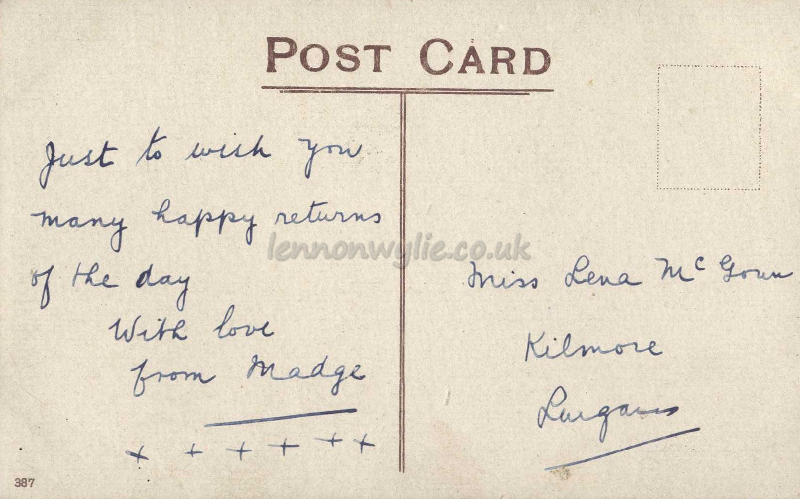 POST CARD
Just to wish you
many happy returns
of the day
With love
from Madge
+ + + + + +
Miss Lena McGoun
Kilmore
Lurgan
lennonwylie.co.uk
387